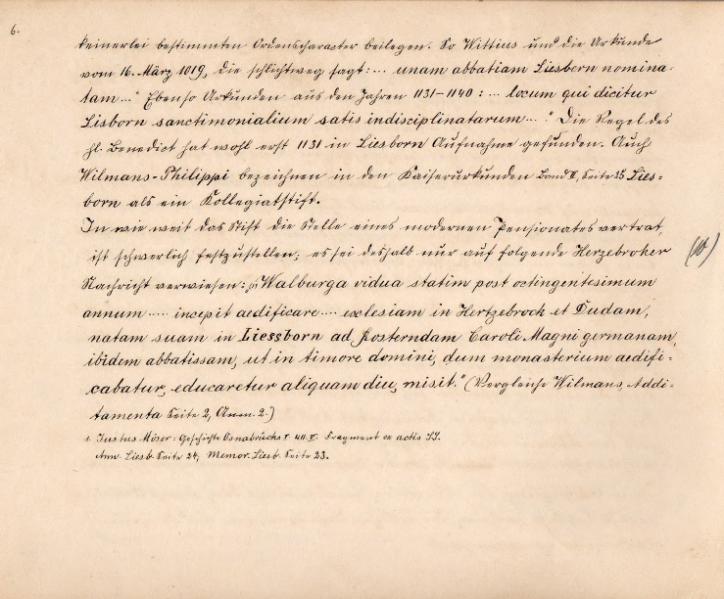 6.
keinerlei bestimmten Ordenscharacter beilegen. So Wittius und die Urkunde
vom 16. März 1019, die schlichtweg sagt: ... unam abbatiam Liesbern nomina-
tam..." Ebenso Urkunden aus den Jahren 1131-1140: ... locum qui dicitur
Lisborn sanctimonialium satis indisciplinatarum...." Die Regel des
hl. Benedict hat wohl erst 1131 in Liesborn Aufnahme gefunden. Auch
Wilmans-Philippi bezeichnen in den Kaiserurkunden Band II, Seite 15 Lies-
born als ein Kollegiatstift.
In wie weit das Stift die Stelle eines modernen Pensionates vertrat,
ist schwerlich festzustellen; es sei deshalb nur auf folgende Herzebroker
(10)
Nachricht verwiesen: "Walburga vidua statim post octingentesimum
annum ..... incepit aedificare .... ecclesiam in Hertzebrock et Dudam,
natam suam in Liessborn ad Caroli Magni germanam,
ibidem abbatissam, ut in timore domini, dum monasterium aedifi-
cabatur, educaretur aliquam diu, misit." (Vergleiche Wilmans, Addi-
tamenta Seite 2, Anm. 2.)
Justus Möser: Geschichte Osnabrücks Fragment ex actis
Ann. Liesb. Seite 24, Memor. Liesb. Seite 23.